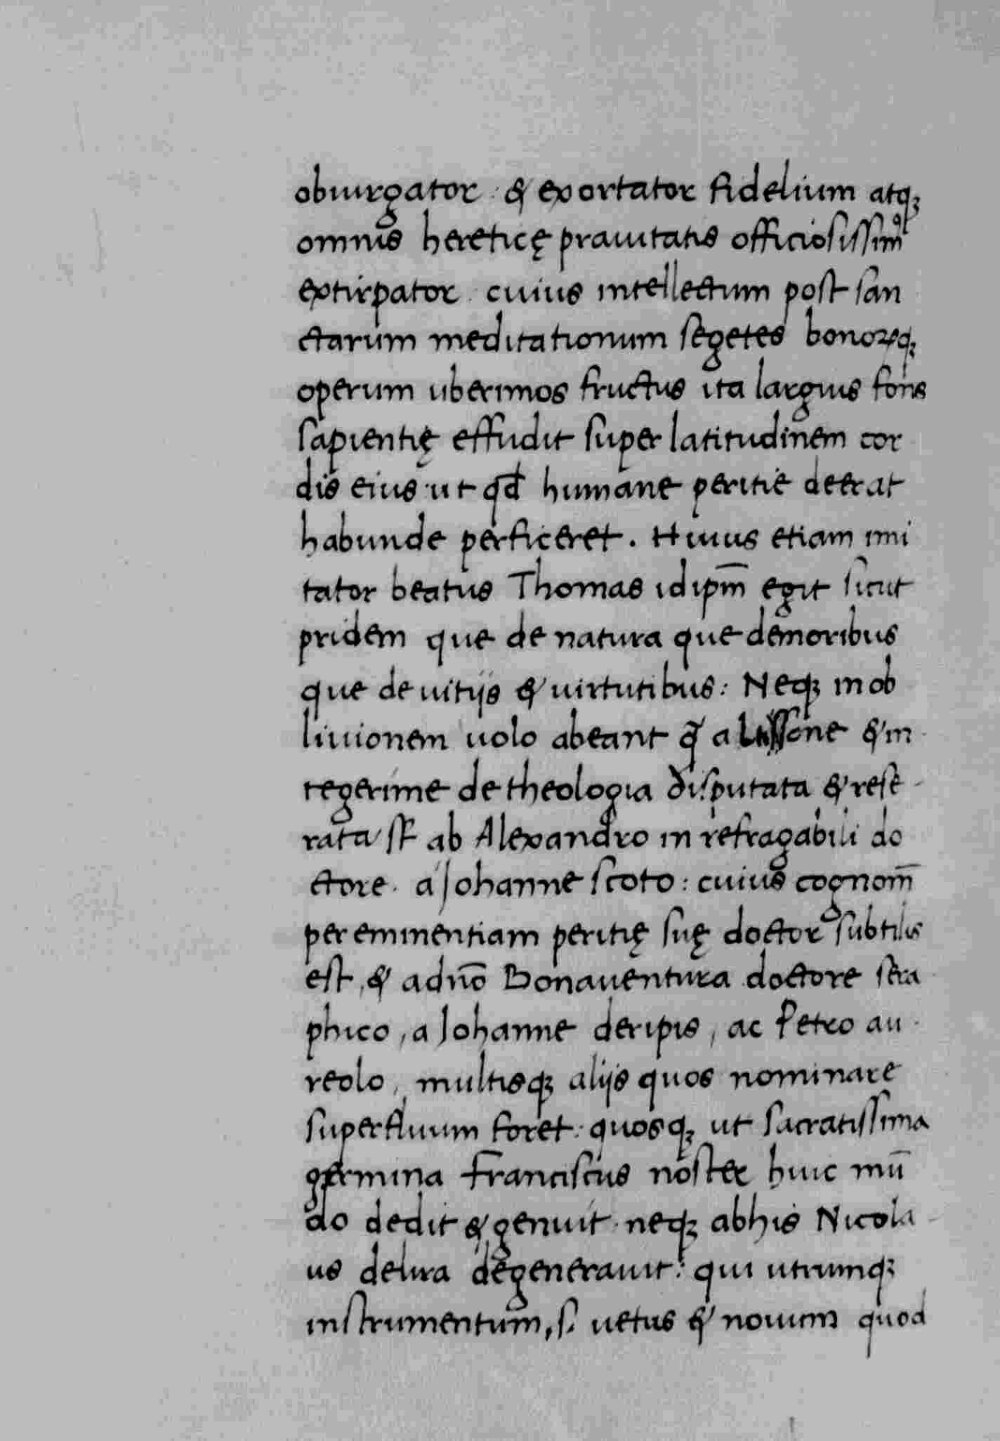 obiurgator & exortator fidelium atq;
omnis hereticę prauitatis officiosissimꝰ
extirpator. cuius intellectum post san
ctarum meditationum segetes bonoꝝq;
operum uberimos fructus ita largius fons
sapientię effudit super latitudinem cor
dis eius ut qd̄ humane peritie deerat
habunde perficeret. Huius etiam imi
tator beatus Thomas idipm̄ egit sicut
pridem que de natura que demoribus
que de uitijs & uirtutibus: Neq; in ob
liuionem uolo abeant q̄ a &in
tegerime de theologia disputata & rese
rata st̄ ab Alexandro in refragabili do
ctore. a Johanne scoto: cuius cognom̄
per eminentiam peritię suę doctor subtilis
est, & adnō Bonauentura doctore sera
phico, a Johanne deripis, ac Petro au
reolo, multisq; alijs quos nominare
superfluum foret: quosq; ut sacratissima
germina Franciscus noster huic mū
do dedit & genuit. neq; abhis Nicola
us delira degenerauit: qui utrumq;
instrumentum, s. uetus & nouum quod